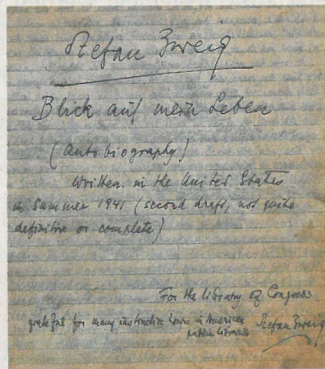 Stefan Zweig
Blick auf mein Leben
(Autobiography)
Written in the United States
in Summer 1941 (second draft, not quite
definitive or complete)
For the Library of Congress
grateful for many instructive hours in American
public libraries Stefan Zweig